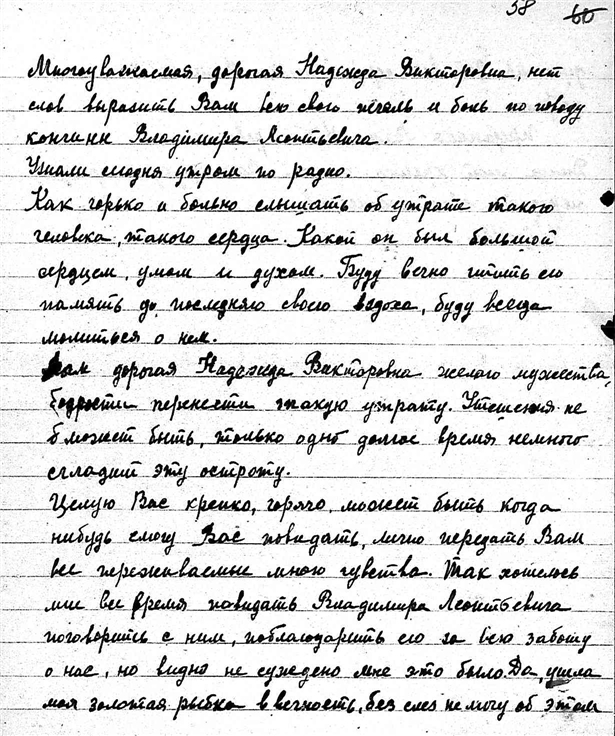 58 60
Многоуважаемая, дорогая Надежда Викторовна, нет
слов выразить Вам всю свою печаль и боль по поводу
кончины Владимира Леонтьевича.
Узнали сегодня утром по радио.
Как горько и больно слышать об утрате такого
человека, такого сердца. Какой он был большой
сердцем, умом и духом. Буду вечно чтить его
память до последняго своего вздоха, буду всегда
молиться о нем.
Вам дорогая Надежда Викторовна желаю мужества,
бодрости перенести такую утрату. Утешения не
может быть, только одно долгое время немного
сгладит эту остроту.
Целую Вас крепко, горячо, может быть когда
нибудь смогу Вас повидать, лично передать Вам
все переживаемые мною чувства. Так хотелось
мне все время повидать Владимира Леонтьевича
поговорить с ним, поблагодарить его за всю заботу
о нас, но видно не суждено мне это было. Да, ушла
моя золотая рыбка в вечность, без слез не могу об этом